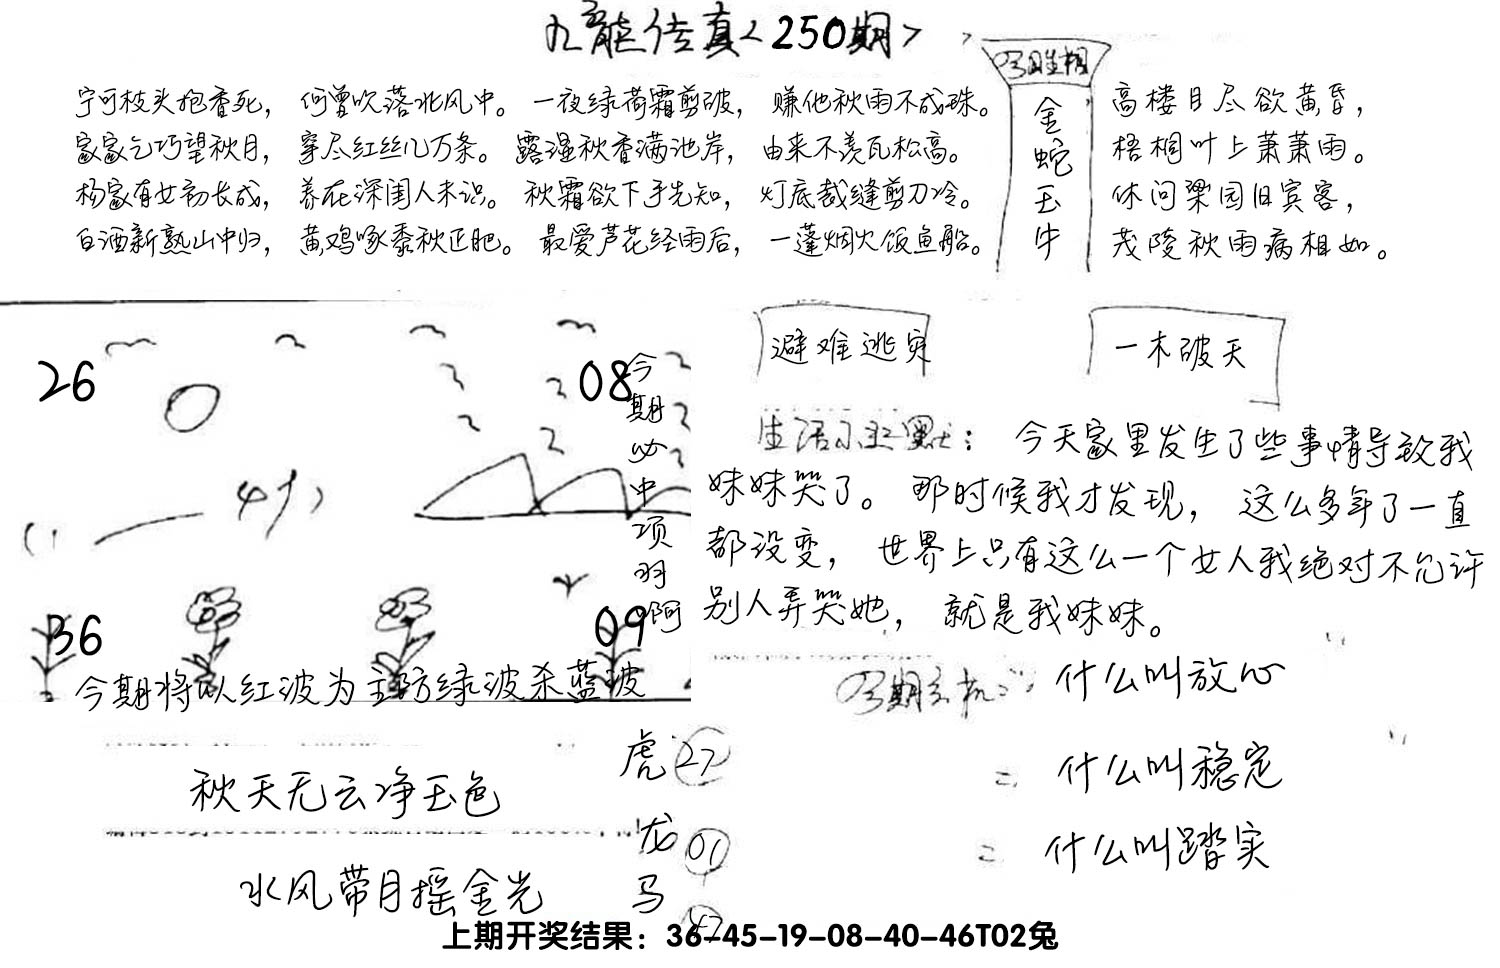 九龍传真<250期>
宁可枝头抱香死， 何曾吹落北风中。 一夜绿荷霜剪破， 赚他秋雨不成珠。
家家乞巧望秋月， 穿尽红丝几万条。 露湿秋香满池岸， 由来不羡瓦松高。
杨家有女初长成， 养在深闺人未识。 秋霜欲下手先知， 灯底裁缝剪刀冷。
白酒新熟山中归， 黄鸡啄黍秋正肥。 最爱芦花经雨后， 一蓬烟火饭鱼船。
金蛇玉牛
高楼目尽欲黄昏，
梧桐叶上萧萧雨。
休问梁园旧宾客，
茂陵秋雨病相如。
26
08
今期必中项羽啊
36
09
今期将以红波为主防绿波杀蓝波
避难逃灾
一木破天
生活小幽默：今天家里发生了些事情导致我
妹妹哭了。那时候我才发现，这么多年了一直
都没变，世界上只有这么一个女人我绝对不允许
别人弄哭她，就是我妹妹。
今期玄机：什么叫放心
什么叫稳定
什么叫踏实
秋天无云净玉色
水风带月摇金光
虎 27
龙 01
马 47
上期开奖结果：36-45-19-08-40-46T02兔